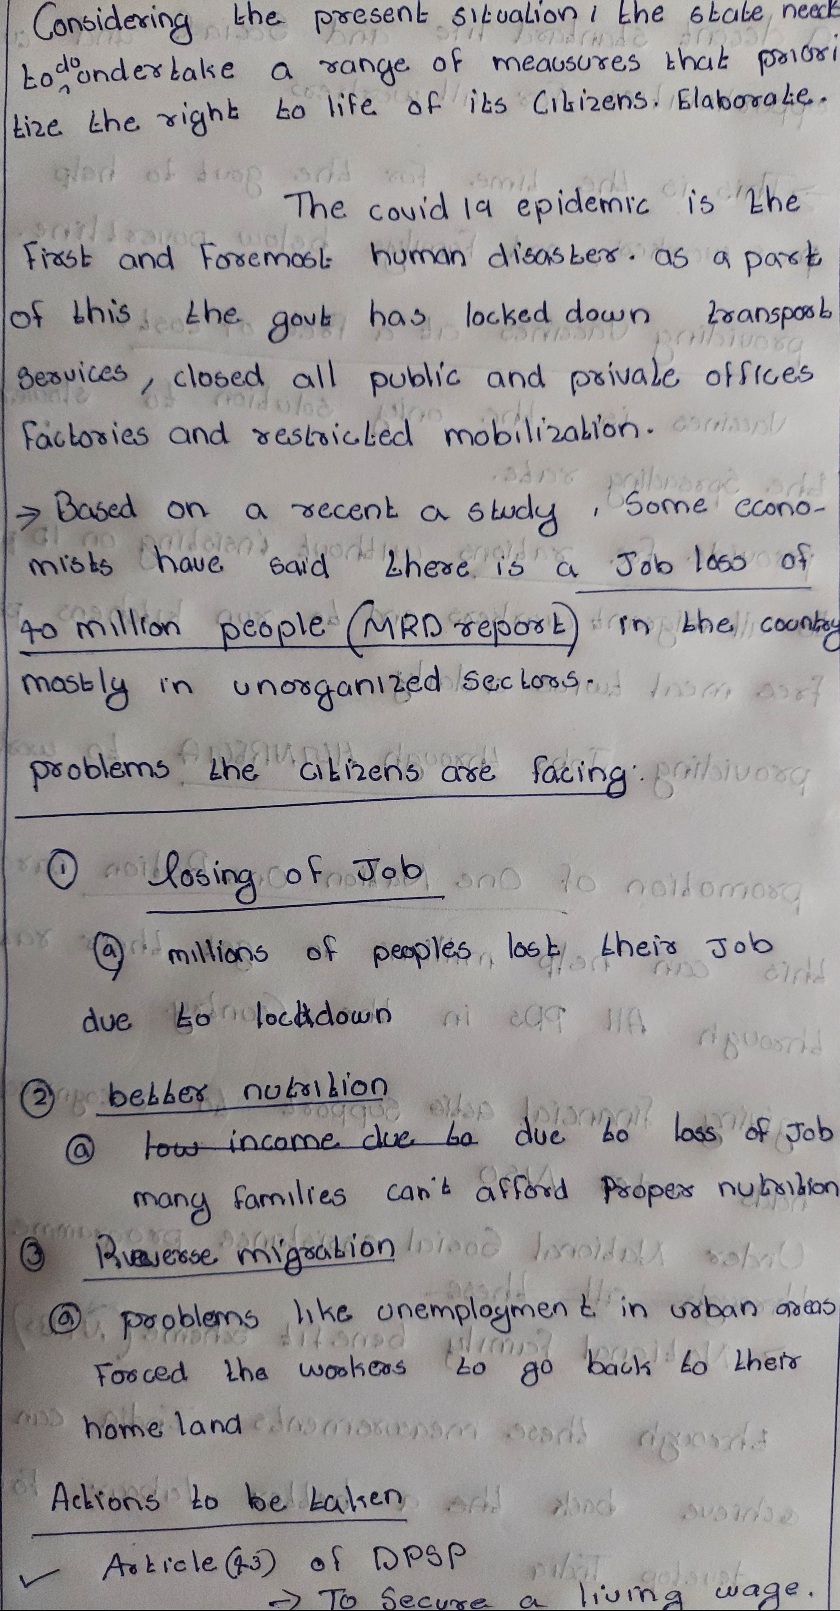 Considering the present situation, the state need
to do undertake a range of meausures that priori
tize the right to life of its Citizens. Elaborate.
The covid 19 epidemic is the
First and Foremost human disaster. as a part
of this the govt has locked down transport
Services, closed all public and private offices
factories and restricted mobilization.
→ Based on a recent a study, Some econo-
mists have said there is a Job loss of
40 million people (MRD report) in the country
mostly in unorganized sectors.
problems the citizens are facing:
① losing of Job
ⓐ millions of peoples lost their Job
due to lockdown
② better nutrition
ⓐ low income due to due to loss of Job
many families can't afford Proper nutrition
③ Reverse migration
ⓐ problems like unemployment in urban areas
Forced the workers to go back to their
home land
Actions to be taken
✓ Article (43) of DPSP
→ To Secure a living wage.